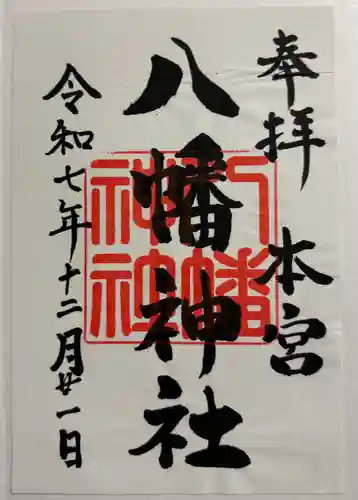 奉拝 本宮
八幡神社
八幡
神社
令和七年十二月廿一日